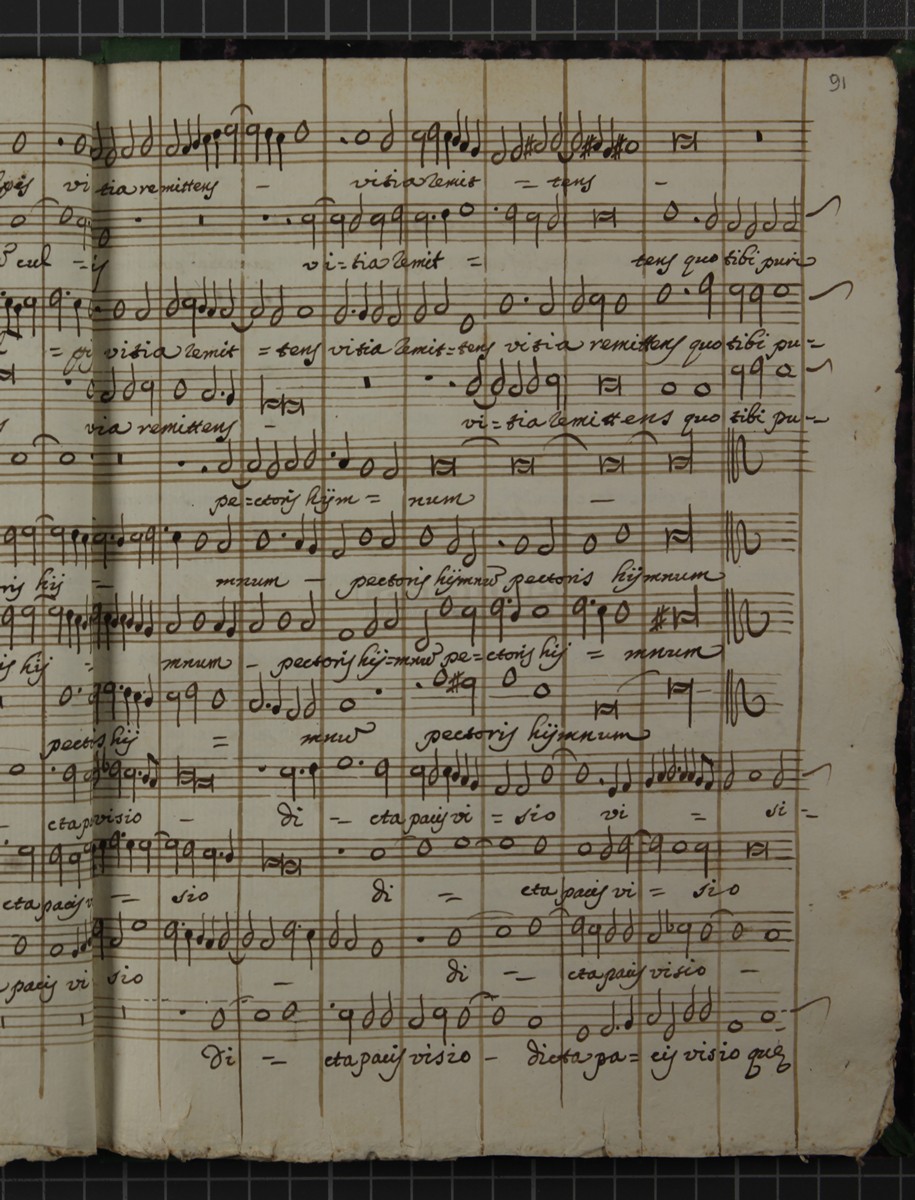 91
vitia remittens - vitia remit = tens -
cul = is vi=tia remit = tens quo tibi puri
= vitia remit = tens vitia remit=tens vitia remittens quo tibi pu=
via remittens - vi=tia remittens quo tibi pu=
pe=ctoris hijm = num -
ris hij - mnum - pectoris hijmnũ pectoris hijmnum
is hij = mnum - pectoris hij=mnũ pe=ctoris hij = mnum
pectoris hij = mnũ pectoris hijmnum
cta pacis visio - di - cta pacis vi = sio vi = si =
cta pacis vi - sio di = cta pacis vi = sio
pacis vi sio - di - cta pacis visio -
Di = cta pacis visio - dicta pa = cis visio quę